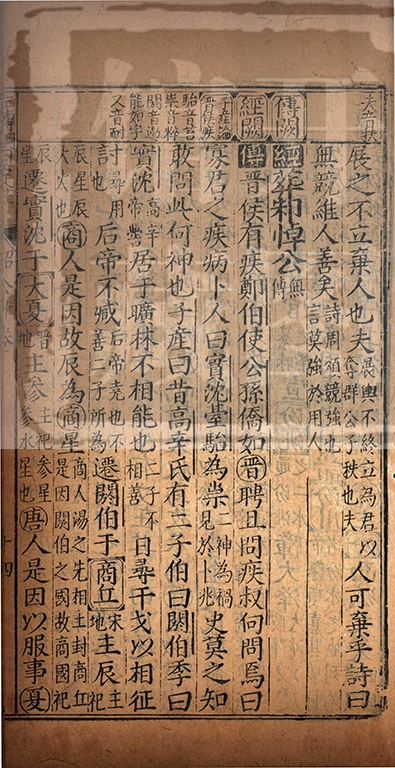 展之不立棄人也夫愚輿不終立為君以人可棄乎詩曰
奪群公子秩也夫
無競維人善矣詩周頌競強也
言莫強於用人
傳闕
經葬邾悼公無傳
經闕
傳晉侯有疾鄭伯使公孫僑如晉聘且問疾叔向問焉曰
子產論晉侯疾
寡君之疾病卜人曰實沈臺駘為祟二神為禍史莫之知
見於卜兆
駘音苔
祟音粹
敢問此何神也子產曰昔高辛氏有二子伯曰閼伯季曰
閼音遏
能如字
實沈高辛居于曠林不相能也二子不日尋干戈以相征
帝嚳
相善
又音耐
尋用
討也后帝不臧后帝堯也不遷閼伯于商丘宋主辰主
善二子所為
地
辰星辰
大火也商人是因故辰為商星商人湯之先相土封商丘
是因閼伯之國故商國祀
辰星遷實沈于大夏晉主參主祀參星唐人是因以服事夏
地
參水星也
十四